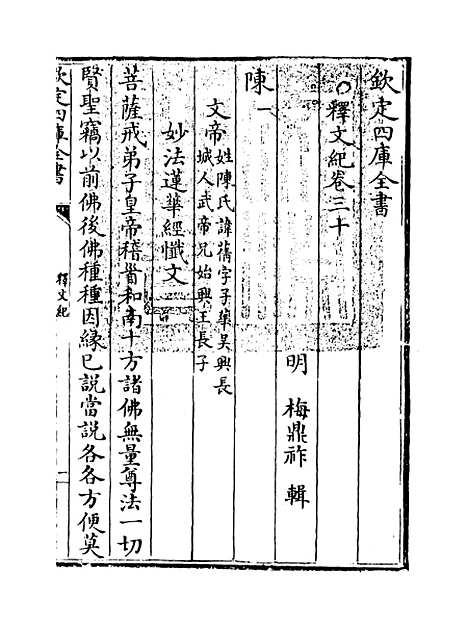 欽定四庫全書
釋文紀卷三十
明 梅鼎祚 輯
陳一
文帝姓陳氏諱蒨字子華吳興長
城人武帝兄始興王長子
妙法蓮華經懺文
菩薩戒弟子皇帝稽首和南十方諸佛無量尊法一切
賢聖竊以前佛後佛種種因緣已說當說各各方便莫
欽定四庫全書
釋文紀